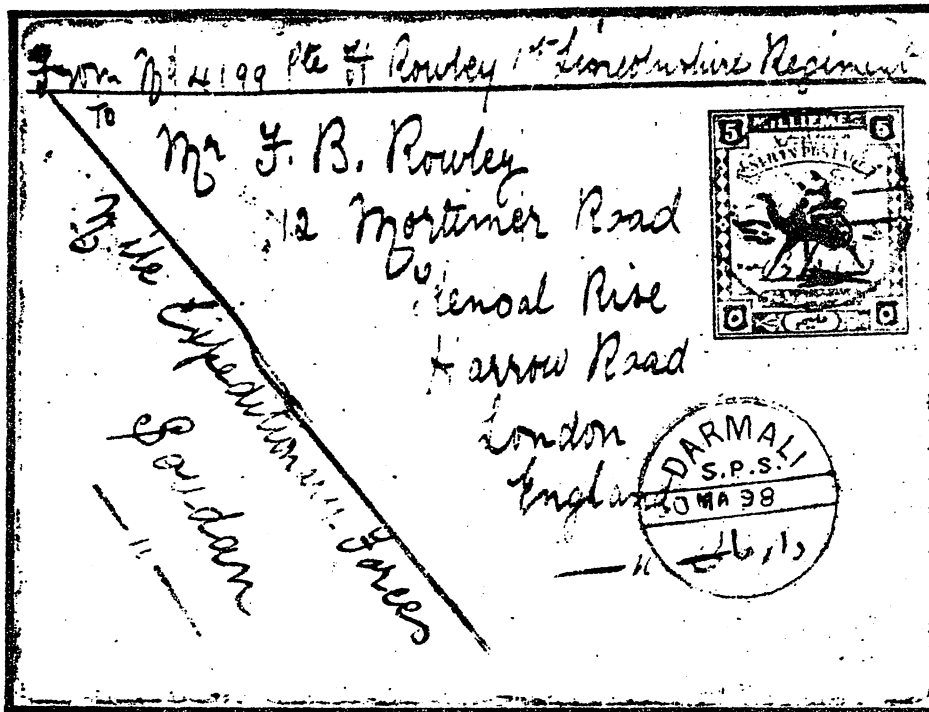 From No 4199 Pte H Rowley 1st Lincolnshire Regiment
To
Mr F. B. Rowley
12 Mortimer Road
Kensal Rise
Harrow Road
London
England
Nile Expeditionary Forces
Soudan
5 MILLIEMES 5
DARMALI
S.P.S.
MA 98